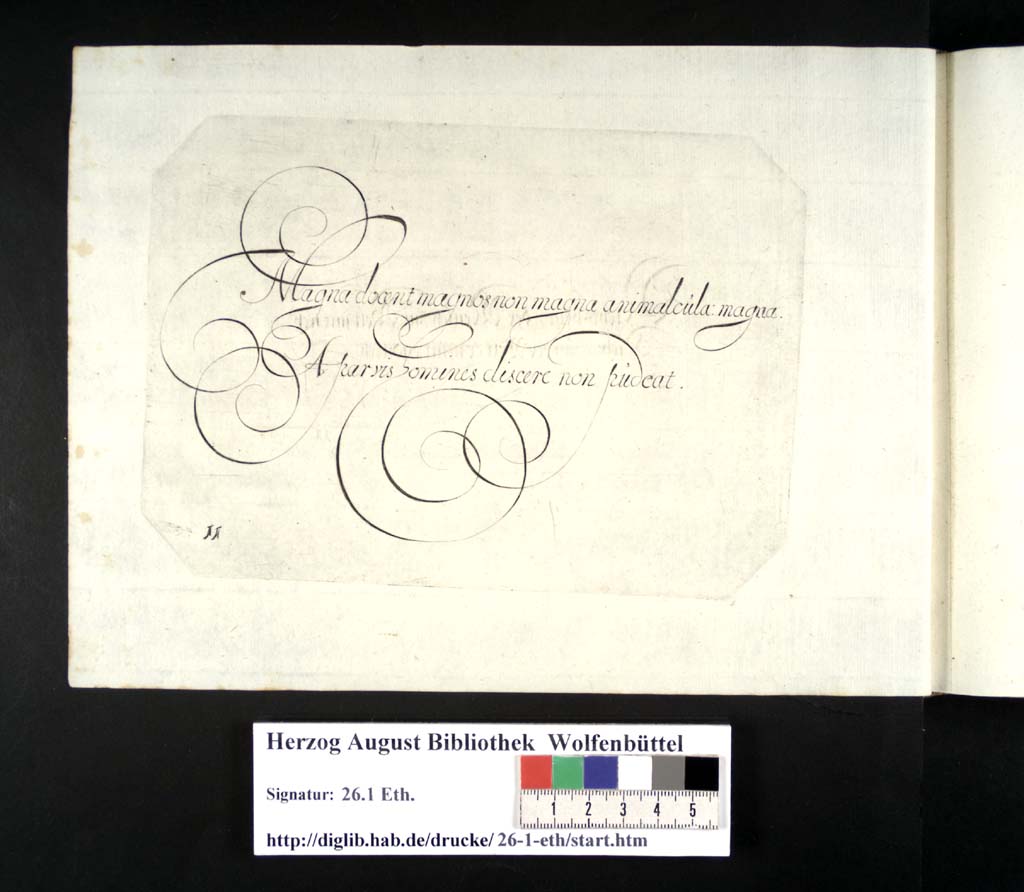 Magna docent magnos non magna animalcula: magna.
A parvis homines discere non pudeat.
11
Herzog August Bibliothek Wolfenbüttel
Signatur: 26.1 Eth.
1 2 3 4 5
http://diglib.hab.de/drucke/ 26-1-eth/start.htm